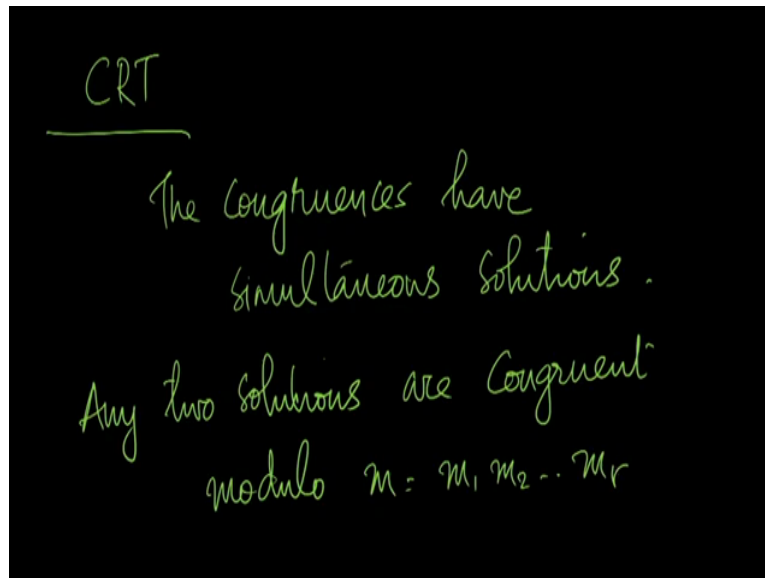 CRT
The Congruences have
simultaneous solutions.
Any two solutions are Congruent
modulo m = m₁ m₂ .. mᵣ